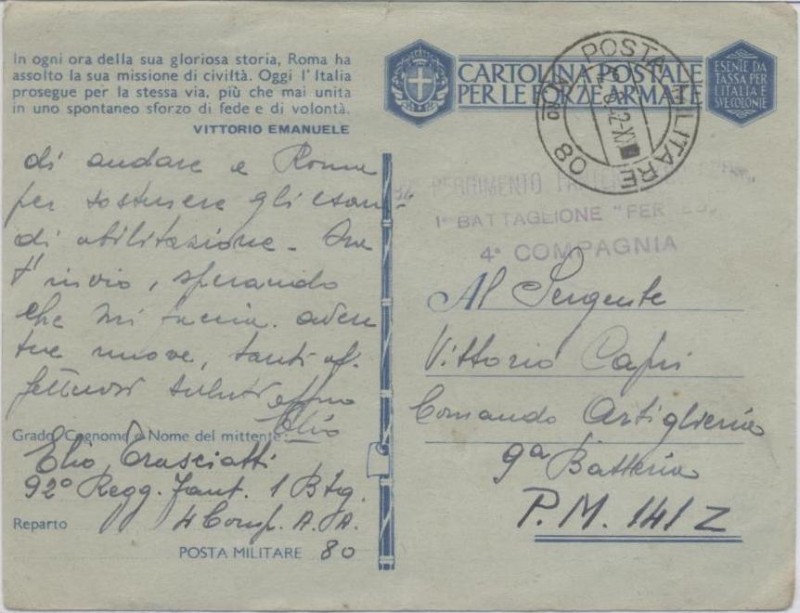 In ogni ora della sua gloriosa storia, Roma ha
assolto la sua missione di civiltà. Oggi l'Italia
prosegue per la stessa via, più che mai unita
in uno spontaneo sforzo di fede e di volontà.
VITTORIO EMANUELE
di andare a Roma
per sostenere gli esami
di abilitazione. Ora
t'invio, sperando
che mi faccia avere
tue nuove, tanti af-
fettuosi saluti affmo
Elio
Grado, Cognome e Nome del mittente:
Elio
92° Regg. Fant. 1 Btg.
Reparto 4 Comp. A. A.
POSTA MILITARE 80
CARTOLINA POSTALE
PER LE FORZE ARMATE
ESENTE DA
TASSA PER
L'ITALIA E
SVE COLONIE
POSTA MILITARE
N° 80
42-XX
92° REGGIMENTO FANTERIA
1° BATTAGLIONE
4ª COMPAGNIA
Al Sergente
Vittorio Capri
Comando Artiglieria
9ª Batteria
P.M. 141 Z